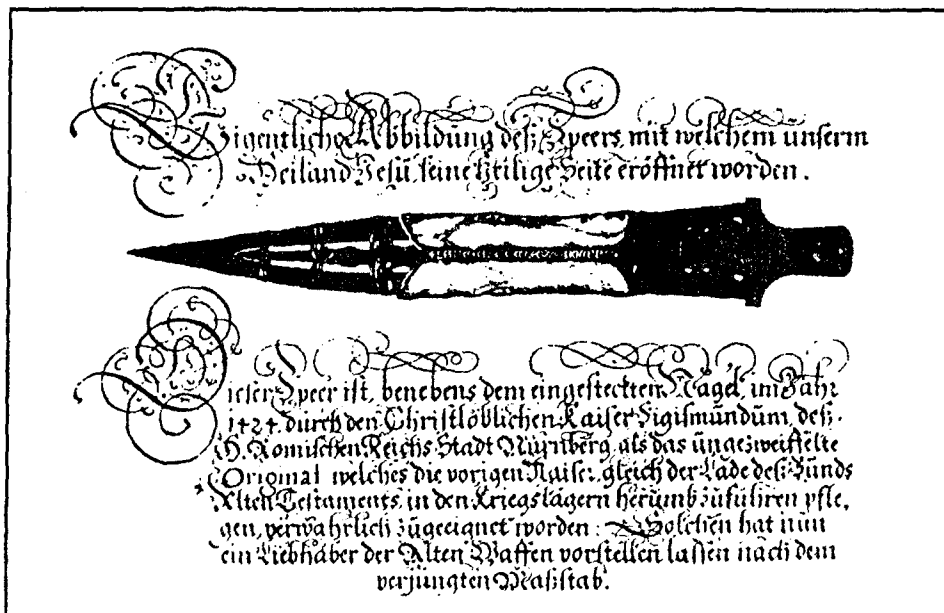 Eigentliche Abbildung deß Speers, mit welchem unserm
Heiland Jesu, seine heilige Seite eröffnet worden.
Dieser Speer ist, benebens dem eingesteckten Nagel, im Jahr
1424. durch den Christlöblichen Kaiser Sigismündüm, deß
H. Römischen Reichs Stadt Nürnberg, als das üngezweiffelte
Original welches die vorigen Kaiser, gleich der Lade deß Bünds
Alten Testaments, in den Kriegslägern herümb zuführen pfle,
gen, verwahrlich zügeeignet worden: Solchen hat nün
ein Liebhaber der Alten Waffen vorstellen lassen nach dem
verjüngten Maßstab.